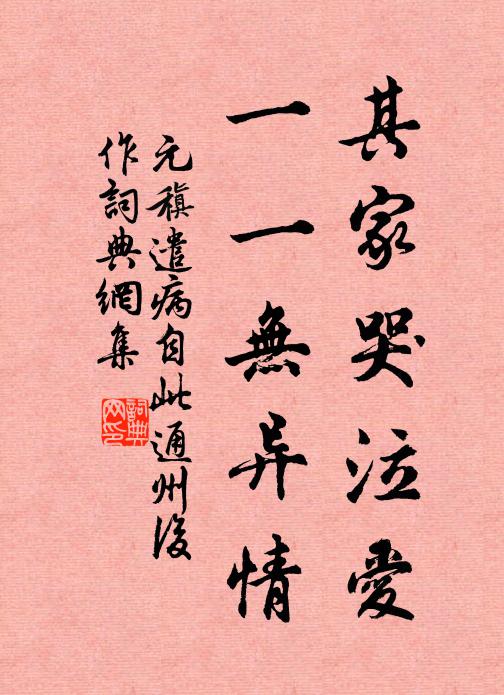 其家哭泣愛
一一無异情
元稹遣病自此通州後
作詞典網集
詞典網印